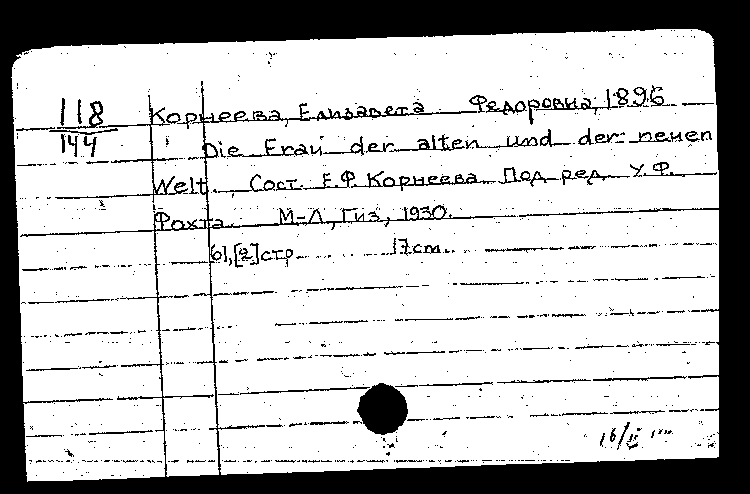 118
144
Корнеева, Елизавета Федоровна, 1896
Die Frau der alten und der neuen
Welt. Сост. Е.Ф. Корнеева. Под ред. У. Ф.
Фохта. М-Л, Гиз, 1930.
61,[2]стр. 17cm.
16/II